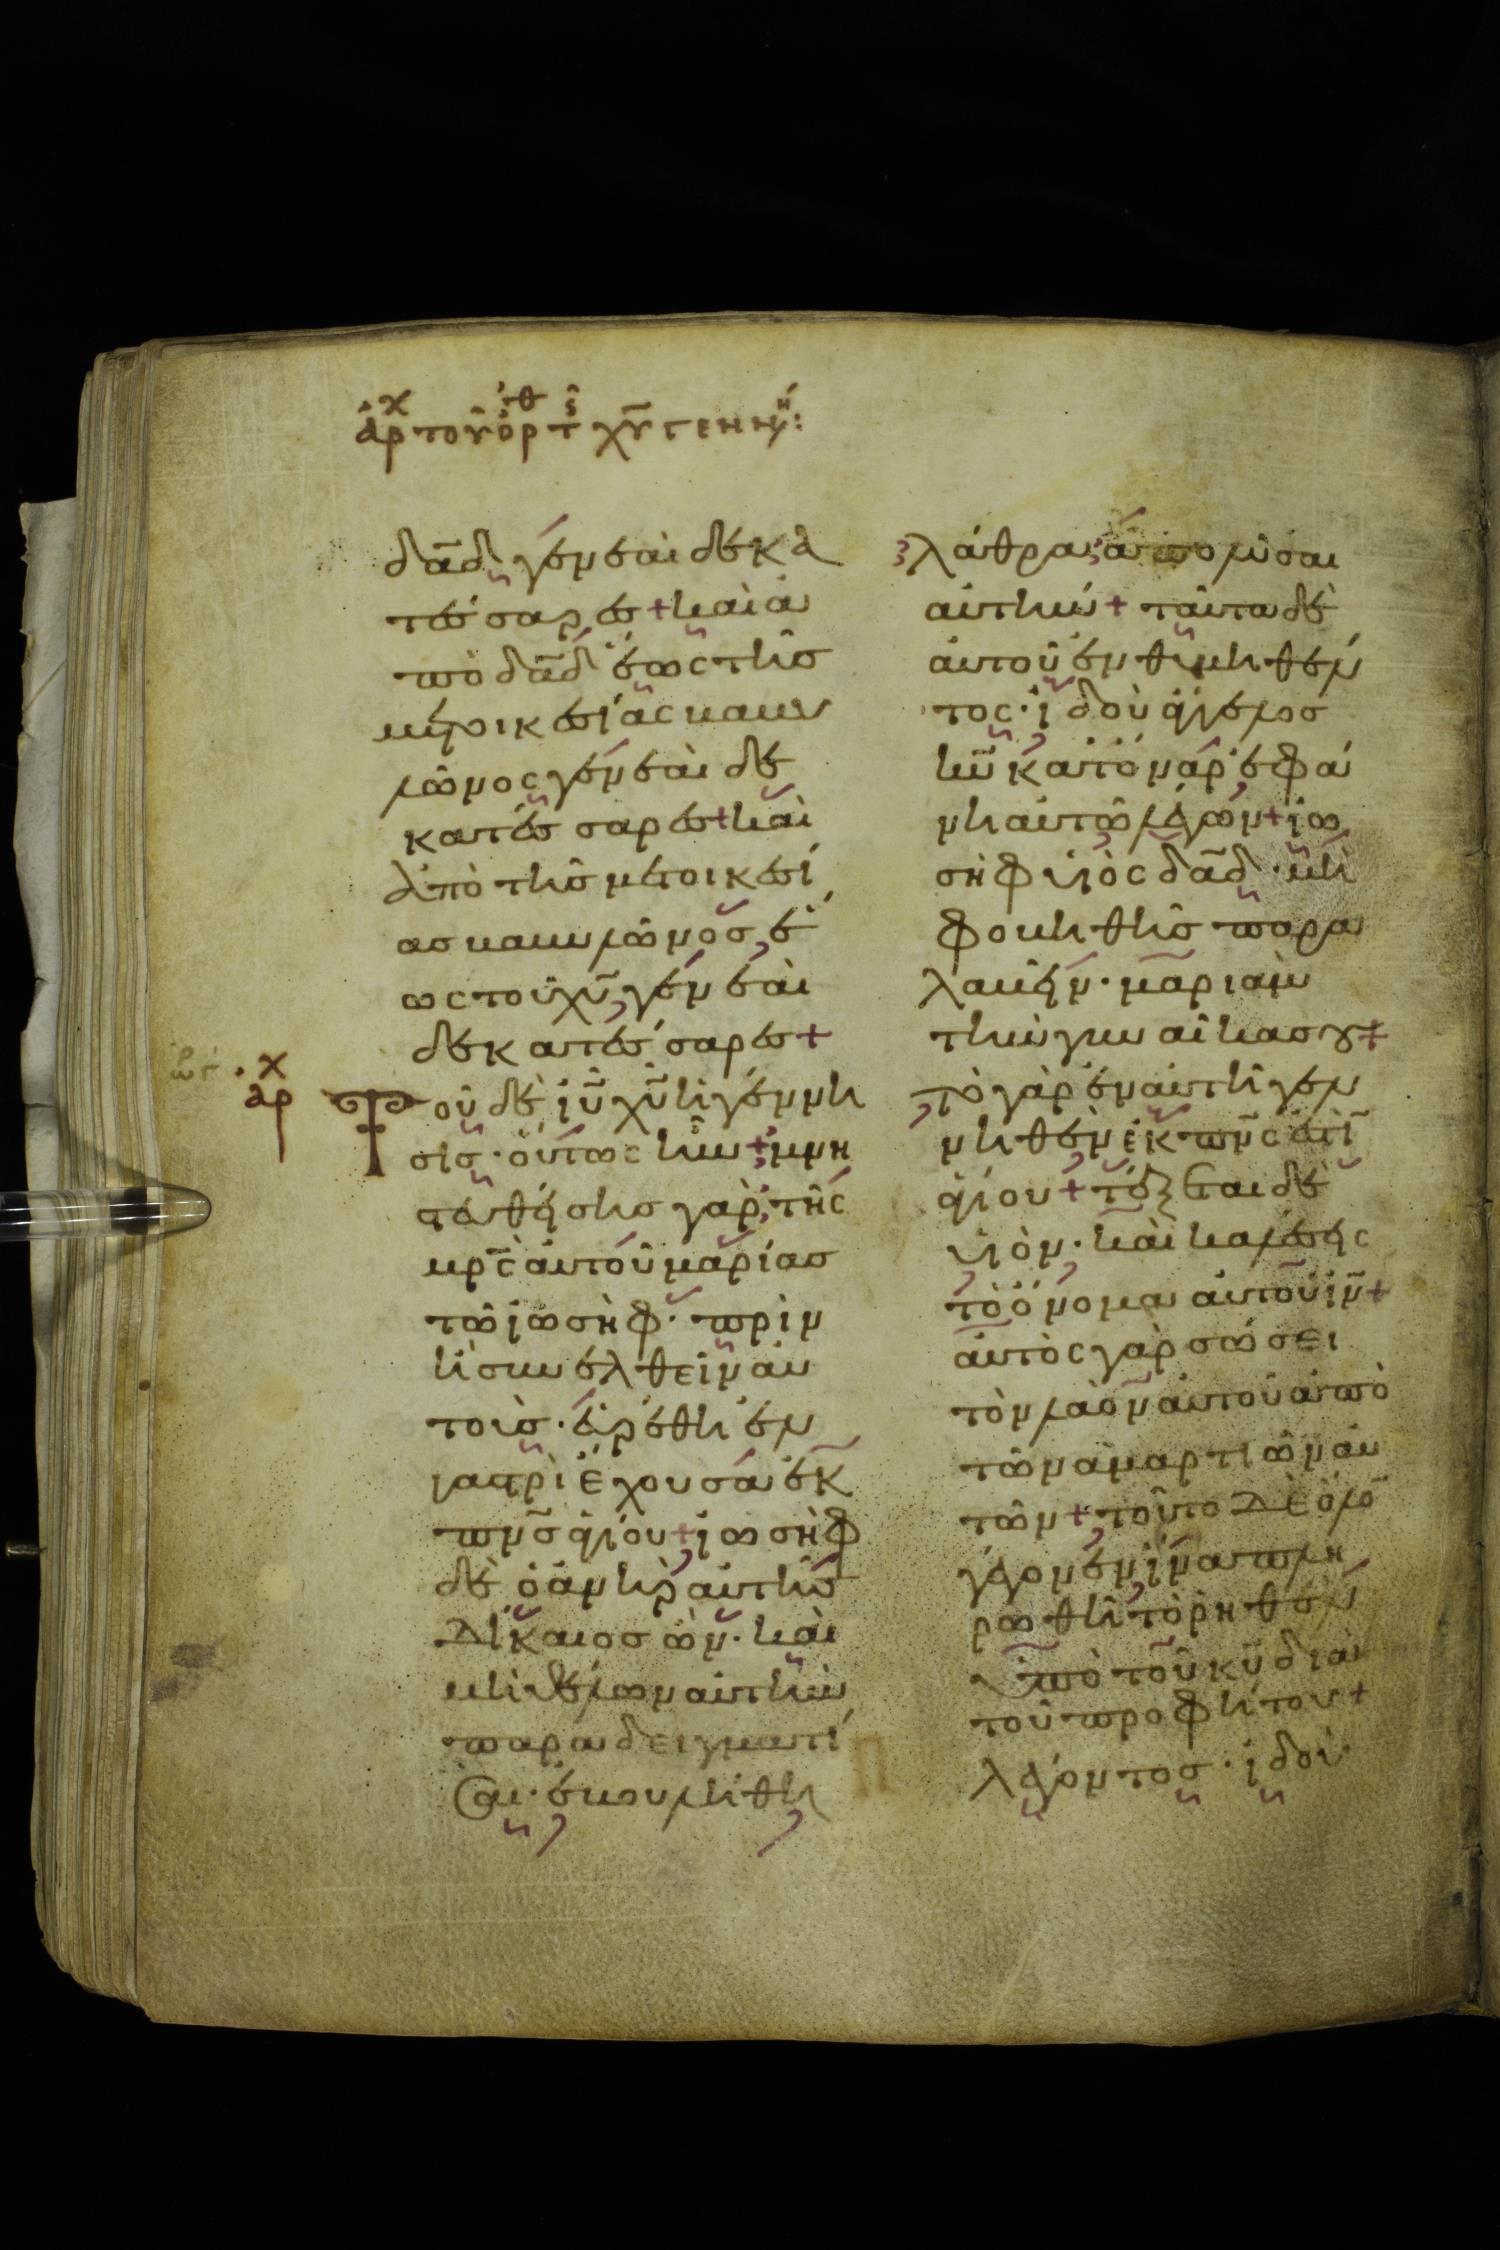 ἀρχ τοῦ ὄρθ τῆς χῦ γεννή:
δᾶδ γενεαὶ δεκα
τέσσαρες + καὶ ἀ
πὸ δᾶδ ἕως τῆς
μετοικεσίας βαβυ
λῶνος γενεαὶ δε
κατέσσαρες + καὶ
ἀπὸ τῆς μετοικεσί
ας βαβυλῶνος, ἕ
ως τοῦ χῦ, γενεαὶ
δεκατέσσαρες +
ἀρχ
Τοῦ δὲ ἰῦ χῦ ἡ γέννη
σις· οὕτως ἦν + μνη
στευθείσης γὰρ τῆς
μρς αὐτοῦ μαρίας
τῷ ἰωσὴφ· πρὶν
ἢ συνελθεῖν αὐ
τούς· εὑρέθη ἐν
γαστρὶ ἔχουσα ἐκ
πνς ἁγίου + ἰωσὴφ
δὲ ὁ ἀνὴρ αὐτῆς
δίκαιος ὢν· καὶ
μὴ θέλων αὐτὴν
παραδειγματί
σαι· ἐβουλήθη
λάθρα ἀπολῦσαι
αὐτήν + ταῦτα δὲ
αὐτοῦ ἐνθυμηθέν
τος· ἰδοὺ ἄγγελος
κῦ κατ' ὄναρ ἐφά
νη αὐτῷ λέγων + ἰω
σὴφ υἱὸς δᾶδ· μὴ
φοβηθῇς παρα
λαβεῖν· μαριὰμ
τὴν γυναῖκα σου +
τὸ γὰρ ἐν αὐτῇ γεν
νηθὲν ἐκ πνς ἐστὶ
ἁγίου + τέξεται δὲ
υἱὸν· καὶ καλέσεις
τὸ ὄνομα αὐτοῦ ἰν +
αὐτὸς γὰρ σώσει
τὸν λαὸν αὐτοῦ ἀπὸ
τῶν ἁμαρτιῶν αὐ
τῶν + τοῦτο δὲ ὅλο
γέγονεν ἵνα πλη
ρωθῇ τὸ ῥηθὲν
ὑπὸ τοῦ κῦ διὰ
τοῦ προφήτου +
λέγοντος· ἰδοὺ